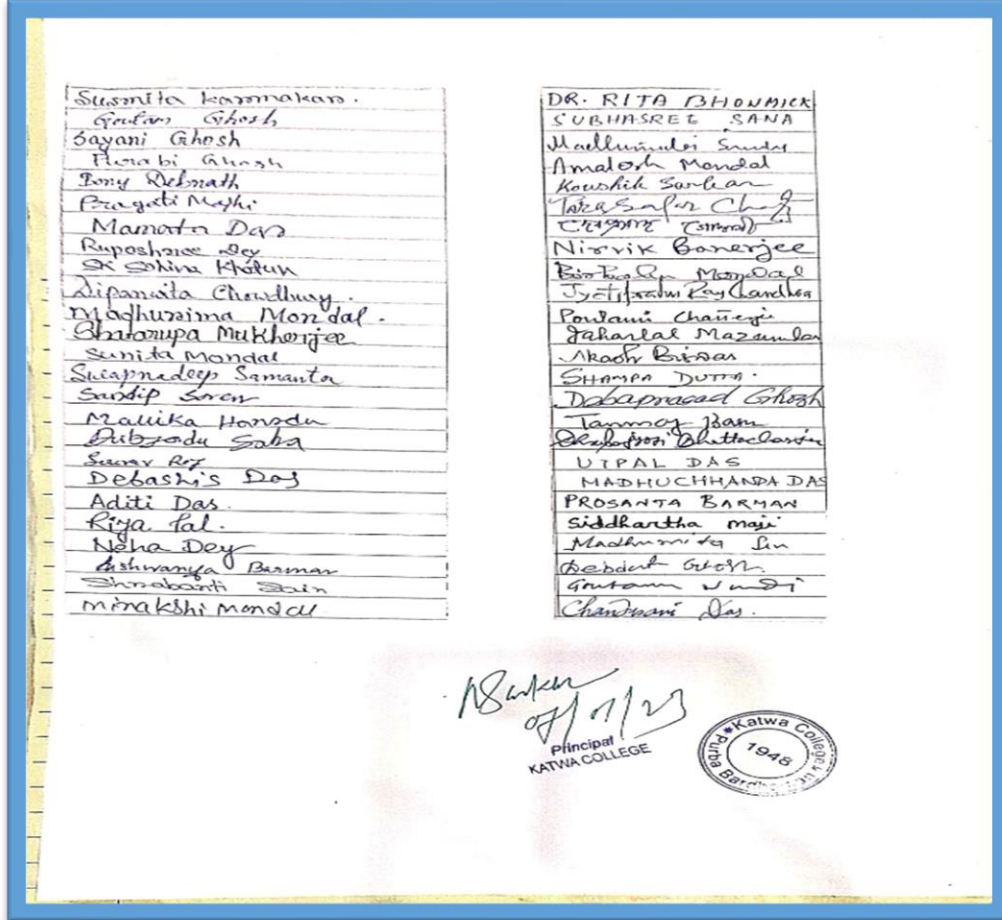 Susmita Karmakar.
Goutam Ghosh
Sayani Ghosh
Purabi Ghosh
Bony Debnath
Pragati Majhi
Mamata Das
Ruposhree Dey
SK Sohina Khatun
Dipanwita Chowdhury.
Madhurima Mondal.
Bhatarupa Mukherjee
Sunita Mondal
Swapnadeep Samanta
Sandip Soren
Mallika Hansda
Saha
Sourav Roy
Debashis Das
Aditi Das.
Riya Pal.
Neha Dey
Aishwarya Barman
Shrabanti Sain
Minakshi Mondal
DR. RITA BHOWMICK
SUBHASREE SANA
Amalesh Mondal
Koushik Sarkar
Nirvik Banerjee
Mondal
Jyotiprabha Ray Chandhra
Poulami Chatterjee
Jaharlal Mazumdar
Akash Biswas
SHAMPA DUTTA.
Debaprasad Ghosh
Tanmoy Bam
Bhattacharjee
UTPAL DAS
MADHUCHHANDA DAS
PROSANTA BARMAN
Siddhartha Maji
Madhumita Sen
Debdut Ghosh.
Goutam Nandi
Chandrani Das.
Principal
KATWA COLLEGE
Katwa College
Purba Bardhaman
1948